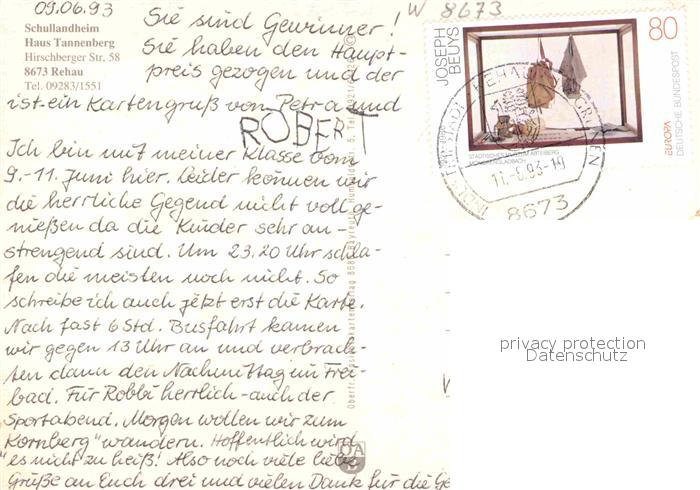 09.06.93
Schullandheim
Haus Tannenberg
Hirschberger Str. 58
8673 Rehau
Tel. 09283/1551
Sie sind Gewinner!
Sie haben den Haupt-
preis gezogen und der
ist ein Kartengruß von Petra und
ROBERT
Ich bin mit meiner Klasse vom
9.-11. Juni hier. Leider können wir
die herrliche Gegend nicht voll ge-
nießen da die Kinder sehr an-
strengend sind. Um 23.20 Uhr schla-
fen die meisten noch nicht. So
schreibe ich auch jetzt erst die Karte.
Nach fast 6 Std. Busfahrt kamen
wir gegen 13 Uhr an und verbrach-
ten dann den Nachmittag im Frei-
bad. Für Robbi herrlich - auch der
Sportabend. Morgen wollen wir zum
"Kornberg" wandern. Hoffentlich wird
es nicht zu heiß! Also noch viele liebe
Grüße an Euch drei und vielen Dank für die Ge
W 8673
JOSEPH
BEUYS
80
STÄDTISCHES MUSEUM ABTEIBERG
MÖNCHENGLADBACH
EUROPA
DEUTSCHE BUNDESPOST
REHAU
11.-6.93-19
8673
privacy protection
Datenschutz